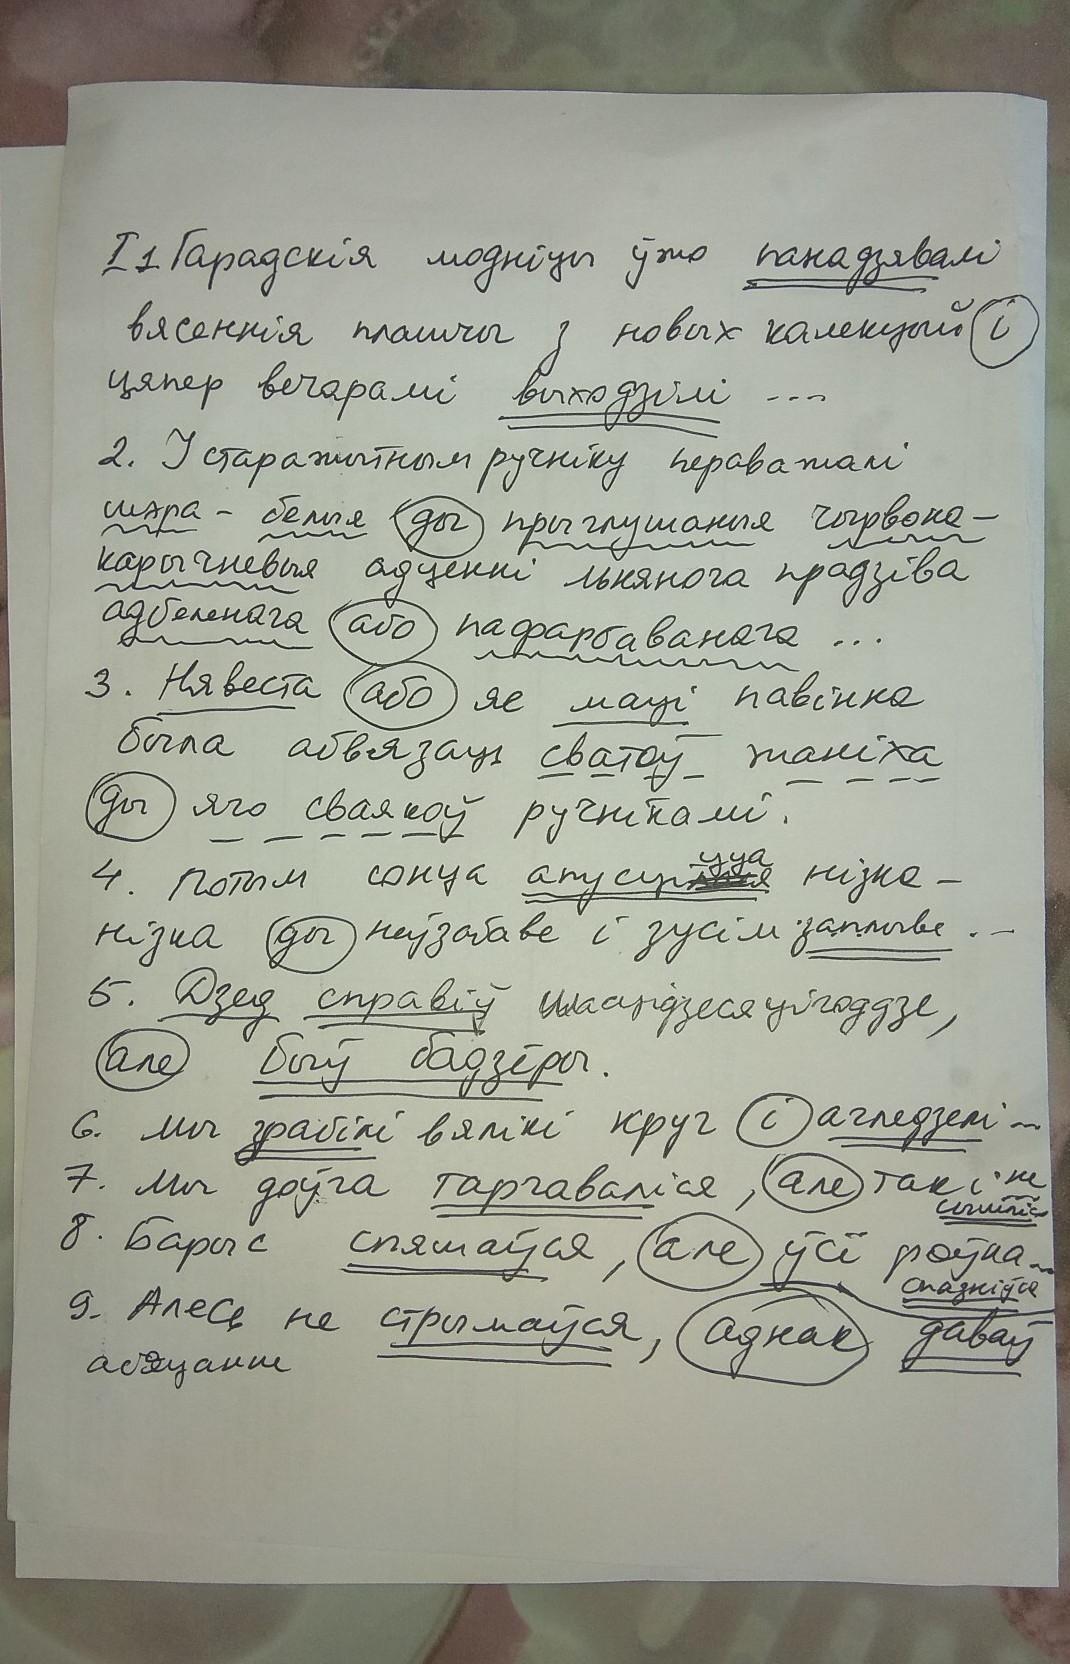 I 1 Гарадскія модніцы ўжо панадзявалі
вясеннія плашчы з новых калекцый і
цяпер вечарамі выходзілі ...
2. У старажытным ручніку пераважалі
шэра - белыя ды прыглушаныя чырвона-
карычневыя адценні льнянога прадзіва
адбеленага або пафарбаванага ...
3. Нявеста або яе маці павінна
была абвязаць сватоў жаніха
ды яго сваякоў ручнікамі.
4. Потым сонца апусціцца нізка-
нізка ды неўзабаве і зусім заплыве ...
5. Дзед справіў шасцідзесяцігоддзе,
але быў бадзёры.
6. Мы зрабілі вялікі круг і агледзелі ...
7. Мы доўга таргаваліся, але такі не
сышліся
8. Барыс спяшаўся, але ўсё роўна ...
спазніўся
9. Алесь не стрымаўся, аднак даваў
абяцанне